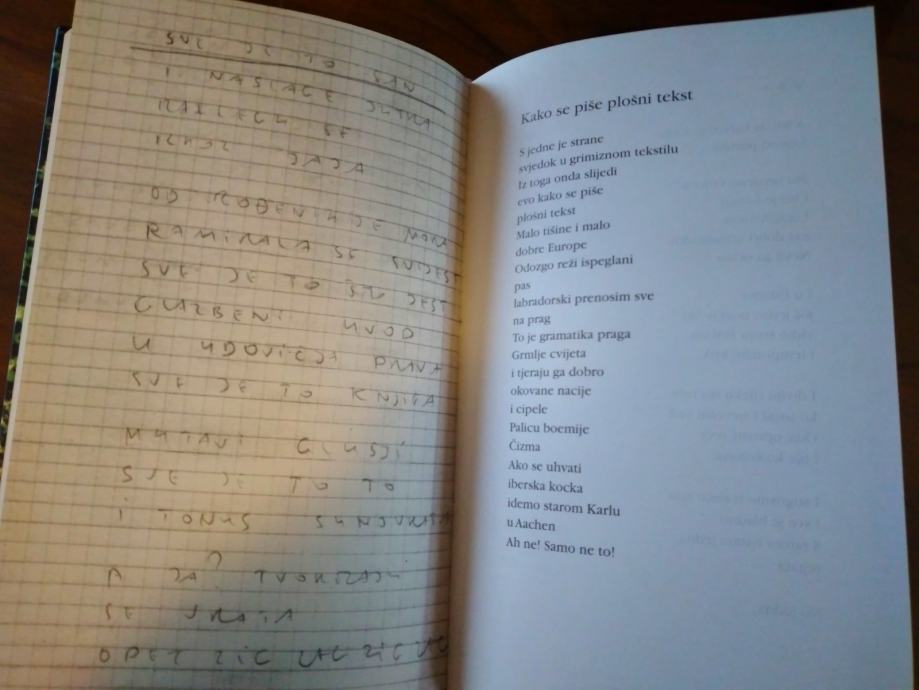 SVE JE TO SAN
I NASLAGE JUTRA
RAZLEGU SE
JAJA
OD ROĐENJA JE
RAMIRALA SE SVIJEST
SVE JE TO ŠTO JEST
GLAZBENI UVOD
U UDOVIČJA PRAVA
SVE JE TO KNJIGA
MUTAVI GLUŠĆI
SVE JE TO TO
I TONUS
A JA?
SE VRAĆA
OPET ZIC ZIC
Kako se piše plošni tekst
S jedne je strane
svjedok u grimiznom tekstilu
Iz toga onda slijedi
evo kako se piše
plošni tekst
Malo tišine i malo
dobre Europe
Odozgo reži ispeglani
pas
labradorski prenosim sve
na prag
To je gramatika praga
Grmlje cvijeta
i tjeraju ga dobro
okovane nacije
i cipele
Palicu boemije
Čizma
Ako se uhvati
iberska kocka
idemo starom Karlu
u Aachen
Ah ne! Samo ne to!